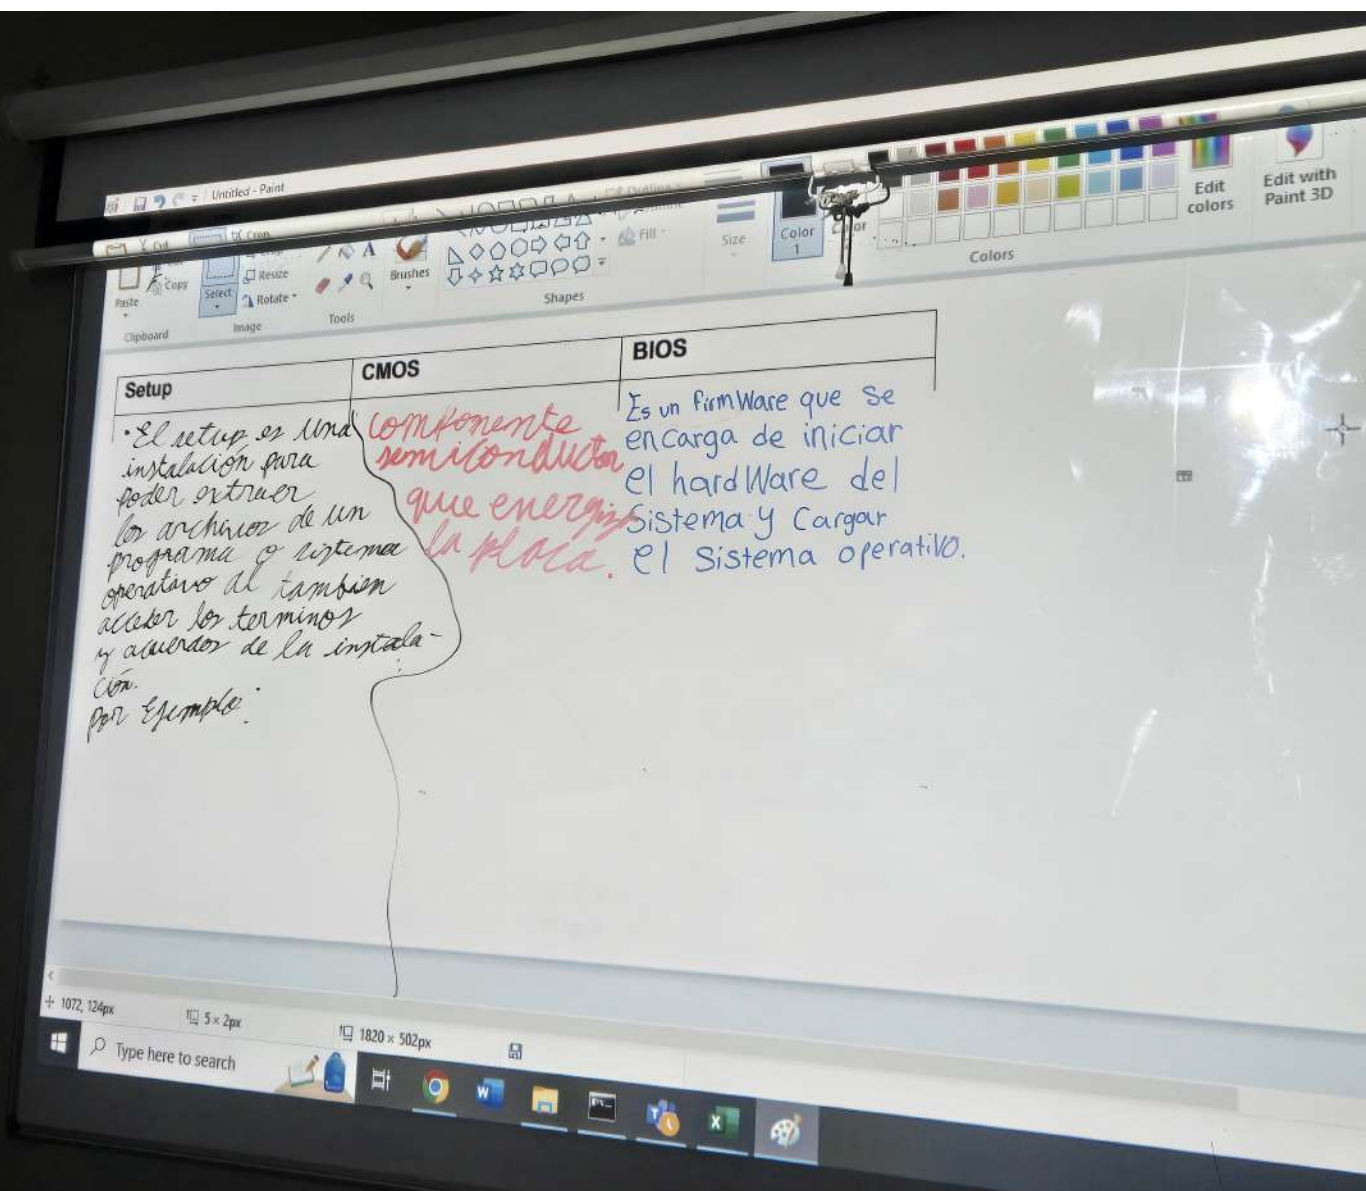 Untitled - Paint
Cut
Copy
Paste
Clipboard
Select
Crop
Resize
Rotate
Image
Tools
Brushes
Shapes
Outline
Fill
Size
Color 1
Colors
Edit colors
Edit with Paint 3D
Setup
CMOS
BIOS
•El setup es una
instalación para
poder extraer
los archivos de un
programa o sistema
operativo al tambien
acceder los terminos
y acuerdos de la instala-
ción.
Por Ejemplo:
componente
semiconductor
que energiza
la placa.
Es un firmWare que se
encarga de iniciar
el hardWare del
Sistema y Cargar
el Sistema operativo.
1072, 124px
5 × 2px
1820 × 502px
Type here to search